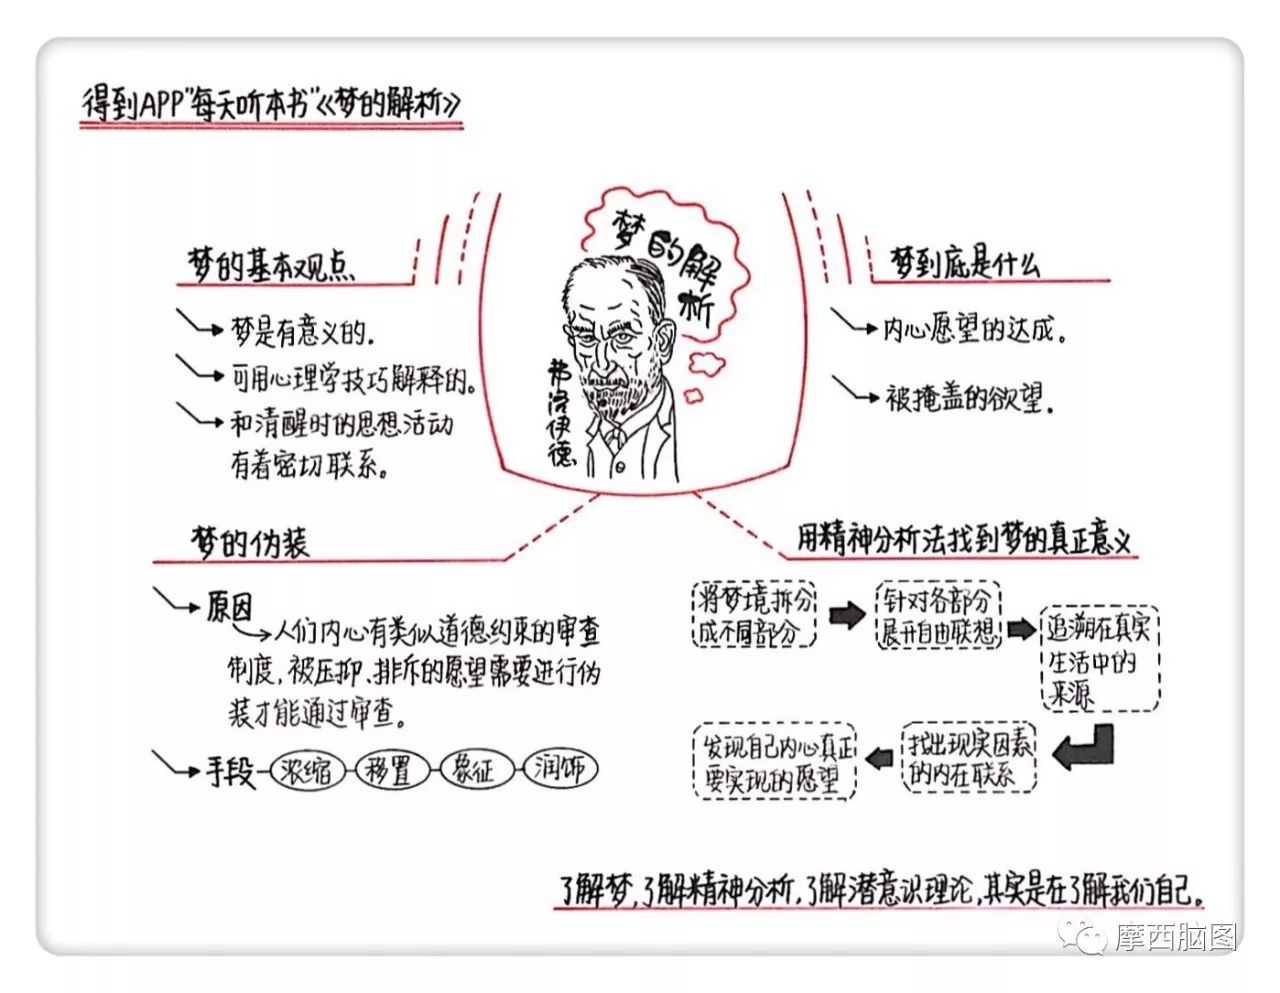 得到APP"每天听本书"《梦的解析》
梦的解析
弗洛伊德
梦的基本观点
梦是有意义的.
可用心理学技巧解释的。
和清醒时的思想活动
有着密切联系。
梦到底是什么
内心愿望的达成。
被掩盖的欲望.
梦的伪装
原因
人们内心有类似道德约束的审查
制度,被压抑、排斥的愿望需要进行伪
装才能通过审查。
手段
浓缩
移置
象征
润饰
用精神分析法找到梦的真正意义
将梦境拆分
成不同部分
针对各部分
展开自由联想
追溯在真实
生活中的
来源
找出现实因素
的内在联系
发现自己内心真正
要实现的愿望
了解梦,了解精神分析,了解潜意识理论,其实是在了解我们自己。
摩西脑图